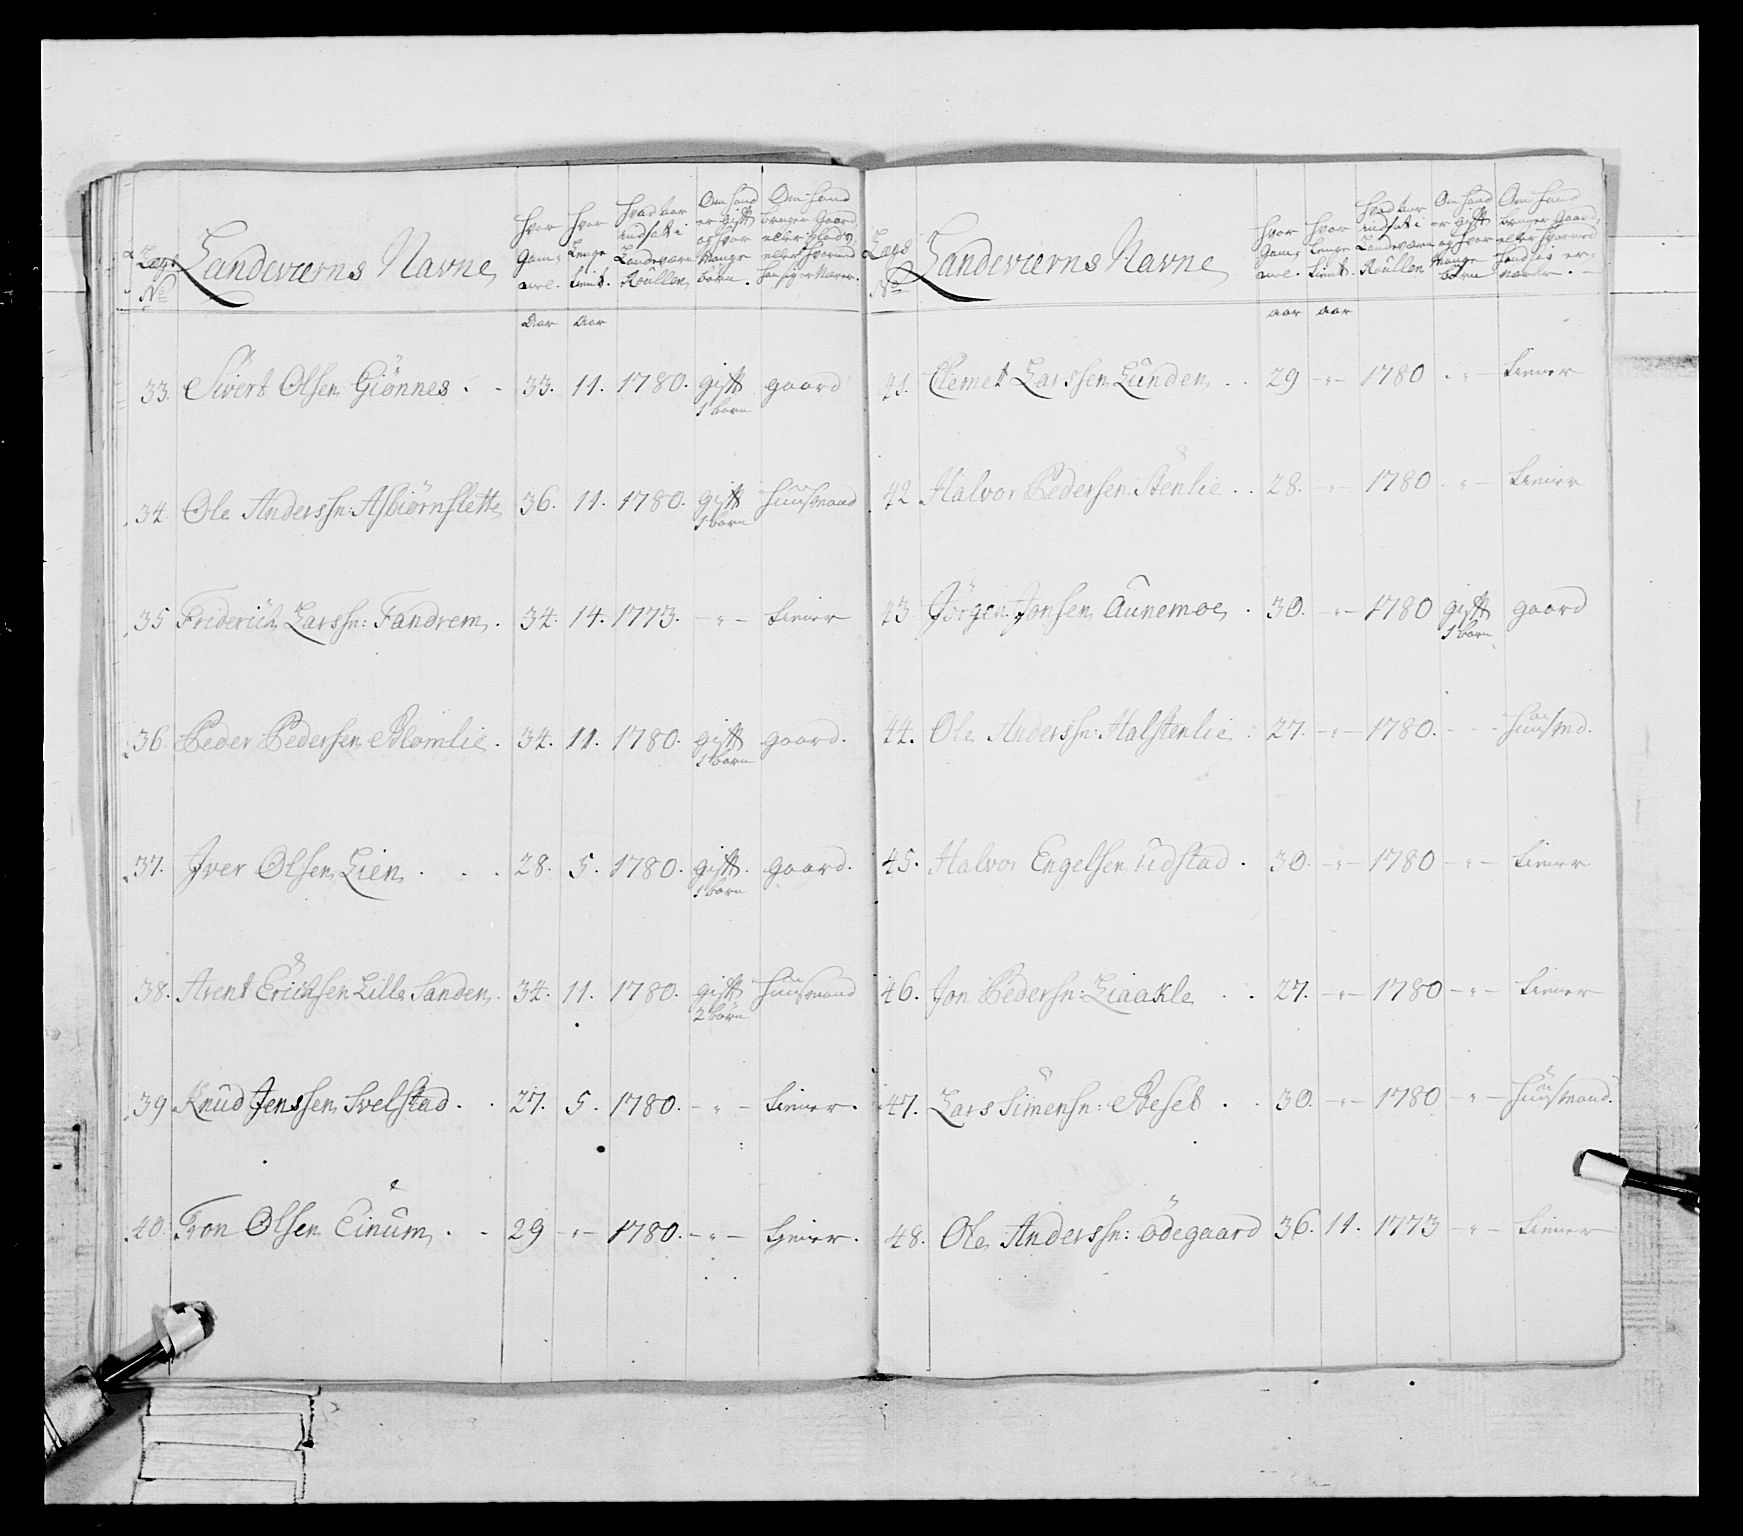 Lægs No Landeværns Navne hvor Gam̄ el. hvor Lenge tient. hvad aar indsat i Landeværn Roullen Om hand er gift og hvor Mange børn. Om hand bruger Gaard, eller Plads eller hvormed
Aar Aar
33. Sivert Olsen Giönnes . - 33. 11. 1780. gift gaard
1 barn
34. Ole Anderssn: Asbiörnslette 36. 11. 1780. gift huusmand
1 barn
35 Friderich Larssn: Fandrem . 34. 14. 1773. - " - tiener
36. Peder Pedersen Blomlie . 34. 11. 1780. gift gaard.
1 barn
37. Iver Olsen Lien . . . 28. 5. 1780. gift. gaard.
1 barn
38. Arent Ericksen Lille Sanden . 34. 11. 1780. gift huusmand
2 börn
39 Knud Jenssen Svelstad . . 27. 5. 1780. - " - tiener.
40. Tron Olsen Einum . - 29 - " - 1780. - " - tjener.
Lægs No Landeværns Navne hvor Gam̄ el. hvor Lenge tient. hvad aar indsat i Landeværn Roullen Om hand er gift og hvor Mange börn Om hand bruger Gaard, eller hvormed
aar aar
41. Clemet Larssen Lunden . . 29 - " - 1780 . " - tiener
42 Halvor Pedersen Stenlie . . 28. - " - 1780 . " - tiener
43 Jörgen Jonsen Aunemoe . 30. - " - 1780 gift gaard
1 barn
44. Ole Anderssn: Halstenlie . 27. - " - 1780. - - - huusmd.
45. Halvor Engelsen Udstad . 30. - " - 1780 - " - tiener
46. Jon Pedersn: Liaakle . . 27. - " - 1780 - " - tiener
47. Lars Simensn: Reset . . 30. - " - 1780 - " - huusmand.
48. Ole Anderssn: Ödegaard 36. 11. 1773 - " - tiener